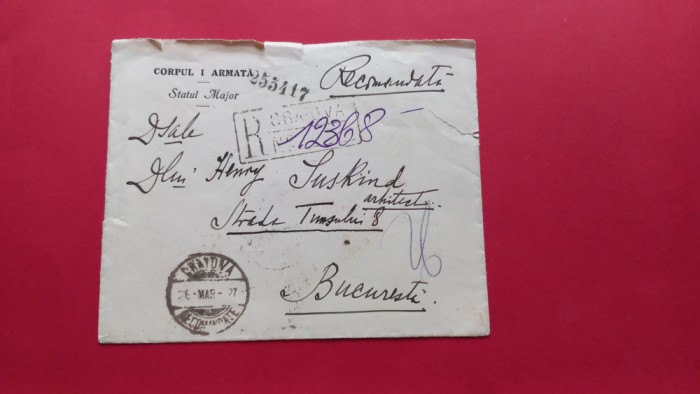 CORPUL I ARMATĂ
Statul Major
255417
Recomandată
R CRAIOVA
12368
Dsale
Dlui Henry Suskind
arhitect
Strada Timșului 8
București.
CRAIOVA
26 - MAR - 27
RECOMANDATE